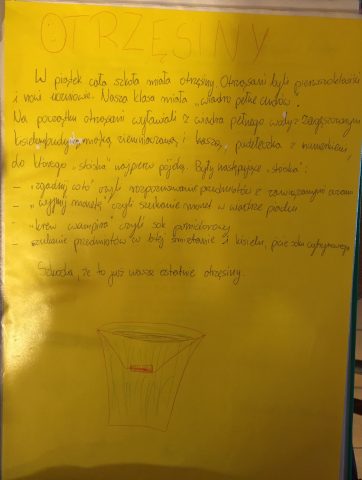 OTRZĘSINY
W piątek cała szkoła miała otrzęsiny. Otrzęsani byli pierwszoklasiści
i nowi uczniowie. Nasza klasa miała „wiadro pełne cudów".
Na początku otrzęsani wyławiali z wiadra pełnego wody z
mąką ziemniaczaną i kaszą, pudełeczka z numerkiem,
do którego „stoiska" najpierw pójdą. Były następujące „stoiska":
- „zgadnij co to" czyli rozpoznawanie przedmiotów z zawiązanymi oczami
- „wyjmij monetę" czyli szukanie monet w
„krew wampira" czyli sok pomidorowy
- szukanie przedmiotów w bitej śmietanie i kisielu, picie soku cytrynowego
Szkoda, że to już nasze ostatnie otrzęsiny.